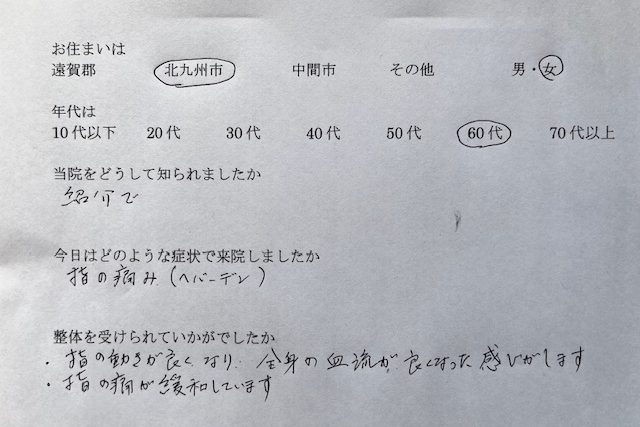 お住まいは
遠賀郡 北九州市 中間市 その他 男・女
年代は
10代以下 20代 30代 40代 50代 60代 70代以上
当院をどうして知られましたか
紹介で
今日はどのような症状で来院しましたか
指の痛み(ヘバーデン)
整体を受けられていかがでしたか
・指の動きが良くなり、全身の血流が良くなった感じがします
・指の痛が緩和しています